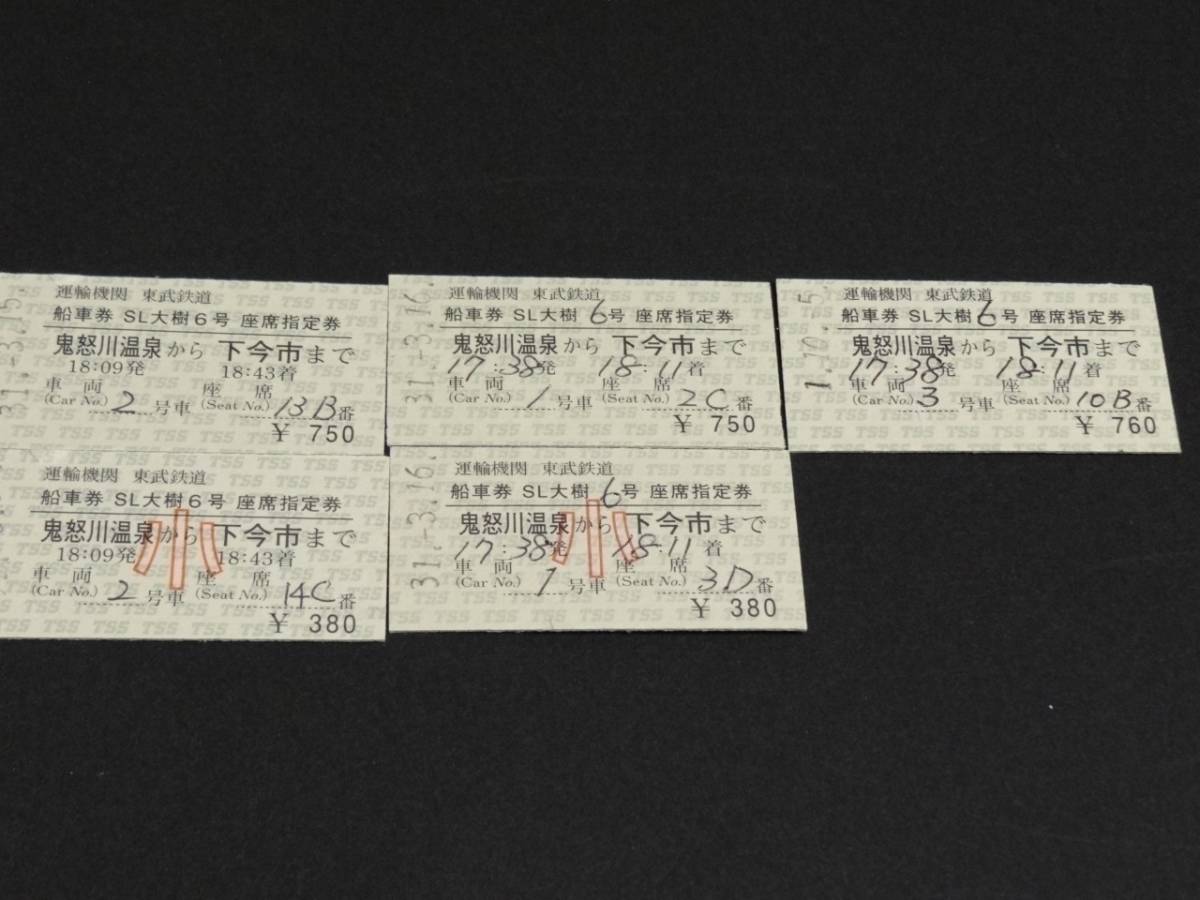 31.-3.15.
運輸機関 東武鉄道
船車券 SL大樹6号 座席指定券
鬼怒川温泉から 下今市まで
18:09発 18:43着
車両 (Car No.) 2 号車 座席 (Seat No.) 13B 番
¥ 750
31.-3.16.
運輸機関 東武鉄道
船車券 SL大樹 6号 座席指定券
鬼怒川温泉から 下今市まで
17:38発 18:11着
車両 (Car No.) 1 号車 座席 (Seat No.) 2C 番
¥ 750
1.10.-5
運輸機関 東武鉄道
船車券 SL大樹 6号 座席指定券
鬼怒川温泉から 下今市まで
17:38発 18:11着
車両 (Car No.) 3 号車 座席 (Seat No.) 10B 番
¥ 760
運輸機関 東武鉄道
船車券 SL大樹6号 座席指定券
鬼怒川温泉から 下今市まで
小
18:09発 18:43着
車両 (Car No.) 2 号車 座席 (Seat No.) 14C 番
¥ 380
31.-3.16.
運輸機関 東武鉄道
船車券 SL大樹 6号 座席指定券
鬼怒川温泉から 下今市まで
小
17:38発 18:11着
車両 (Car No.) 1 号車 座席 (Seat No.) 3D 番
¥ 380